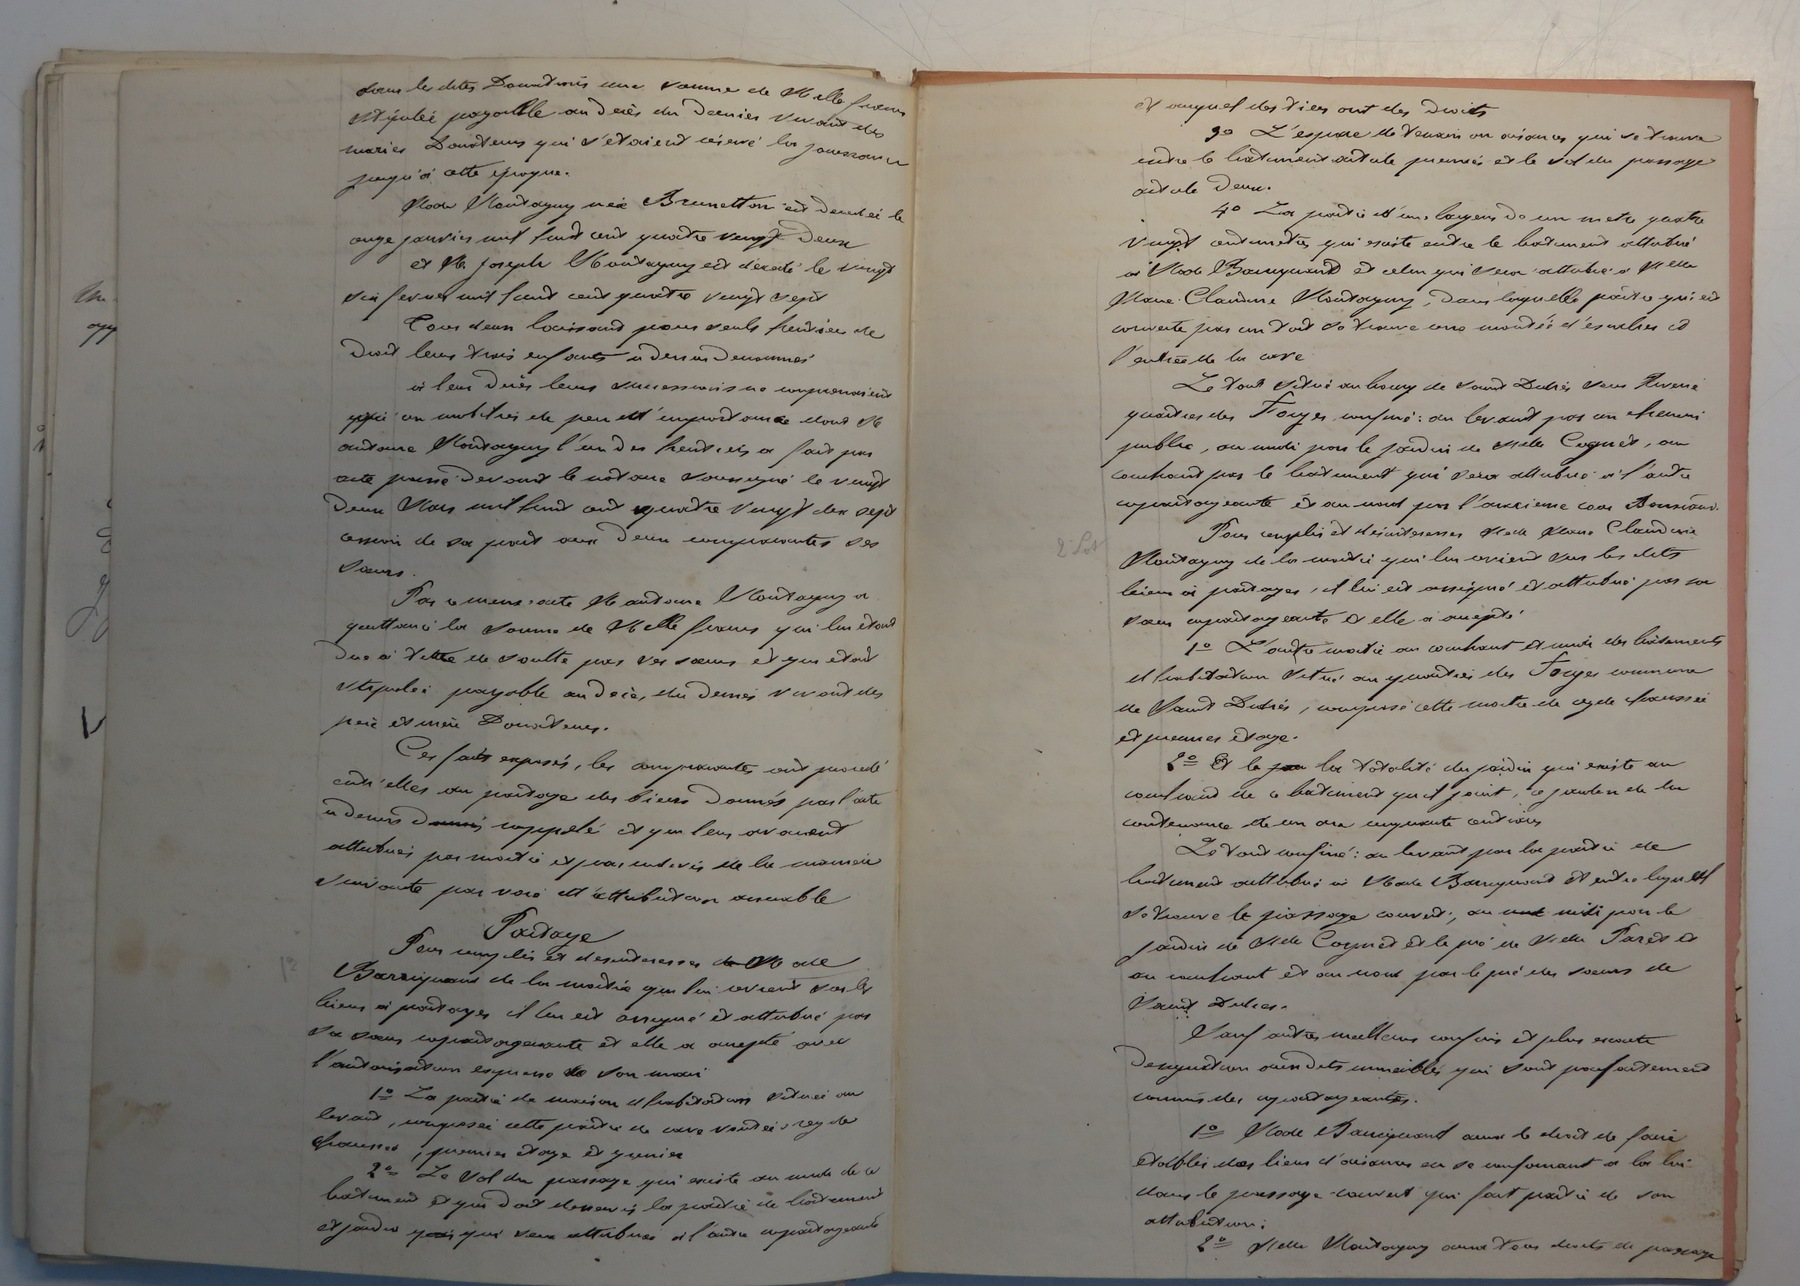 dans les dites Donations une somme de Mille francs
stipulée payable au décès du dernier vivant des
mariés Donateurs qui s'étaient réservé la jouissance
jusqu'à cette époque.
Made Montagny née Brunetton est décédée le
onze janvier mil huit cent quatre vingt Deux
et M. Joseph Montagny est décédé le vingt
six fevrier mil huit cent quatre vingt sept
Tous deux laissant pour seuls héritiers de
Droit leurs trois enfants ci dessus denommés
à leur décès leurs successions ne comprenaient
qu'un mobilier de peu d'importance dont M.
antoine Montagny l'un des héritiers a fait par
acte passé devant le notaire soussigné le vingt
Deux Mars mil huit cent quatre vingt dix sept
cession de sa part aux Deux comparantes ses
sœurs.
Par le meme acte M. antoine Montagny a
quittancé la somme de Mille francs qui lui était
due à titre de soulte par ses sœurs et qui était
stipulée payable au décès du dernier vivant des
père et mère Donateurs.
Ces faits exposés, les comparantes ont procédé
entr'elles au partage des biens donnés par l'acte
ci dessus rappelé et qui leur avaient
attribués par moitié et par indivis de la manière
suivante par voie d'attribution amiable
Partage
1º
Pour remplir et desinteresser Made
Barriquand de la moitié qui lui revient sur les
biens à partager il lui est assigné et attribué par
sa sœur copartageante et elle a accepté avec
l'autorisation expresse de son mari
1º La partie de maison d'habitation située au
levant, composée cette partie de cave voutée, rez de
chaussée, premier étage et grenier
2º Le sol du passage qui existe au midi de ce
batiment et qui doit desservir la partie de batiment
et jardin qui sera attribuée à l'autre copartageante
et auquel des tiers ont des Droits
3º L'espace de terrain ou aisances qui se trouve
entre le batiment article premier et le sol du passage
article Deux.
4º La partie d'une largeur de un metre quatre
vingt centimetres qui existe entre le batiment attribué
à Made Barriquand et celui qui sera attribué à Melle
Marie Claudine Montagny, dans laquelle partie qui est
couverte par un toit se trouve une montée d'escaliers et
l'entrée de la cave
Le tout situé au bourg de Saint
quartier des Forges, confiné: au levant par un chemin
public, au midi par le jardin de Melle Cognet, au
couchant par le batiment qui sera attribué à l'autre
copartageante et au nord par l'ancienne cour
2e Lot
Pour remplir et désinteresser Melle Marie Claudine
Montagny de la moitié qui lui revient sur les dits
biens à partager, il lui est assigné et attribué par sa
sœur copartageante et elle a accepté
1º L'autre moitié au couchant et midi des batiments
d'habitation situé au quartier des Forges commune
de Saint, composée cette moitié de rez de chaussée
et premier étage.
2º Et la totalité du jardin qui existe au
couchant de ce batiment qu'il joint, ce jardin de la
contenance de un are cinquante centiares
Le tout confiné: au levant par la partie de
batiment attribué à Made Barriquand et entre lequel
se trouve le passage couvert; au midi par le
jardin de Melle Cognet et le pré de Melle Paret et
au couchant et au nord par le pré des sœurs de
Saint
Sauf autres meilleurs confins et plus exacte
designation aux dits immeubles qui sont parfaitement
connus des copartageantes.
1º Made Barriquand aura le droit de faire
établir des lieux d'aisances en se conformant à la loi
dans le passage couvert qui fait partie de son
attribution;
2º Melle Montagny aura tous droits de passage